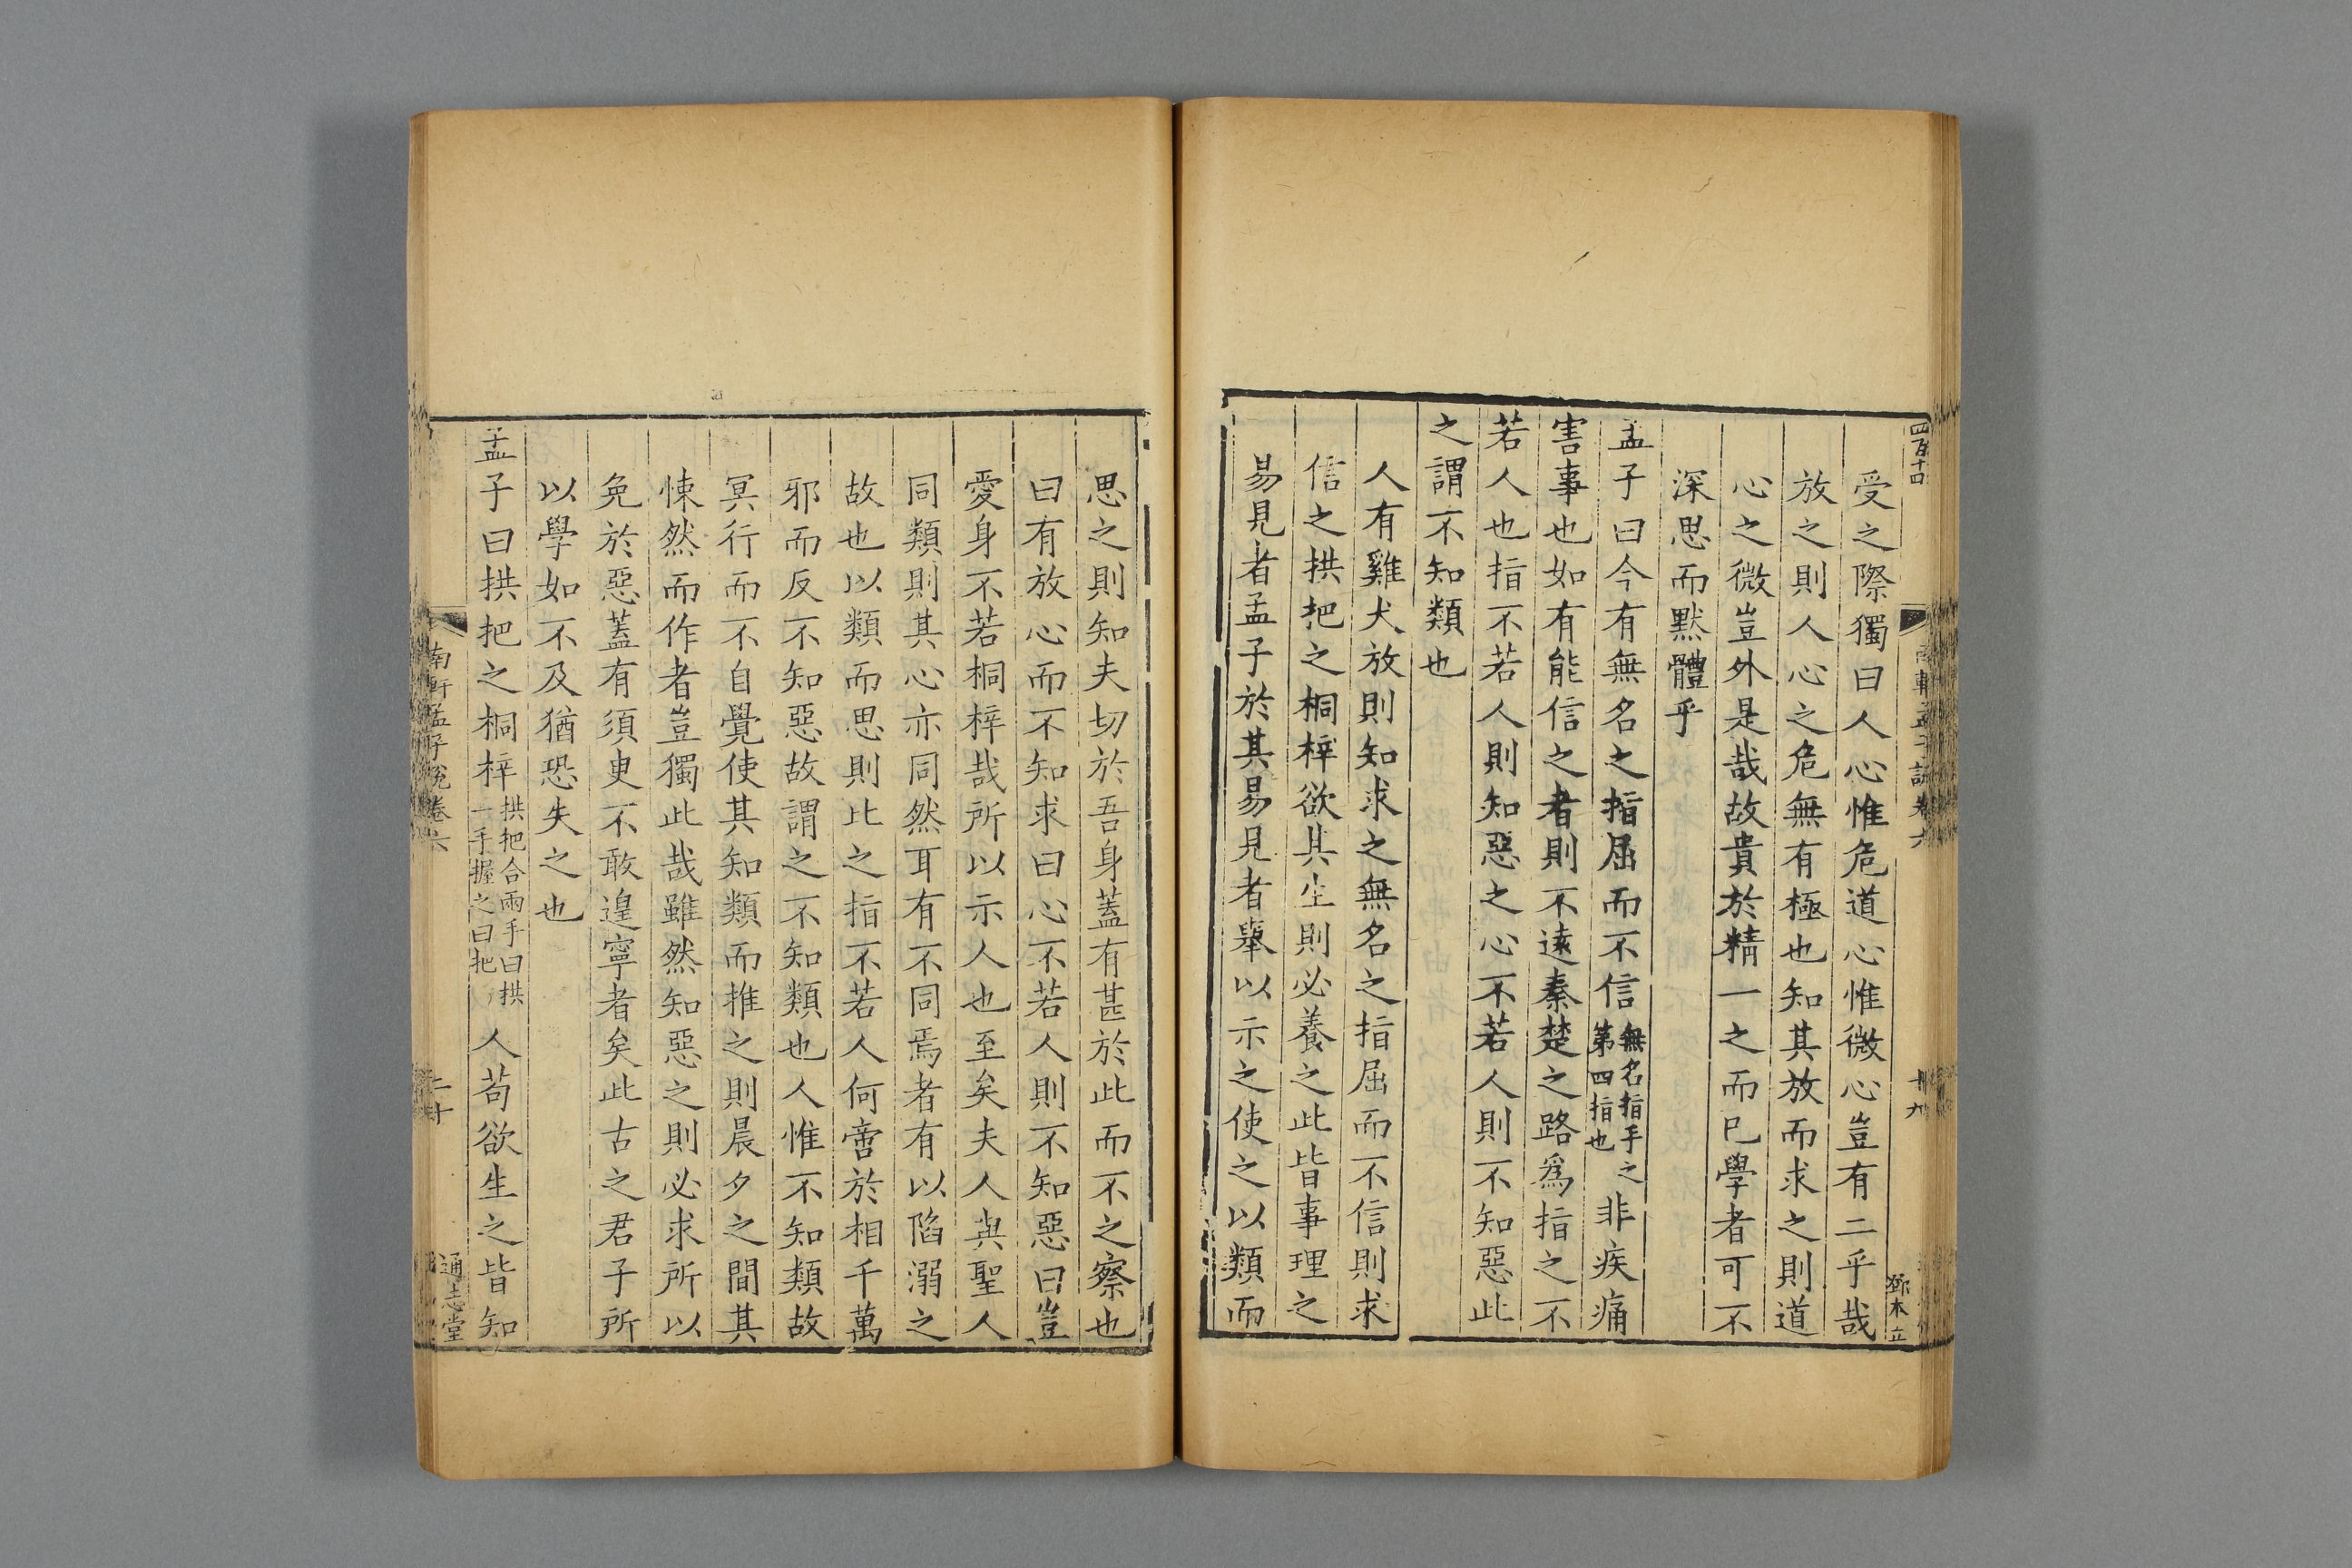 四百十四
南軒孟子說卷六
十九
鄧本立
受之際獨曰人心惟危道心惟微心豈有二乎哉
放之則人心之危無有極也知其放而求之則道
心之微豈外是哉故貴於精一之而已學者可不
深思而默體乎
孟子曰今有無名之指屈而不信無名指手之第四指也非疾痛
害事也如有能信之者則不遠秦楚之路爲指之不
若人也指不若人則知惡之心不若人則不知惡此
之謂不知類也
人有雞犬放則知求之無名之指屈而不信則求
信之拱把之桐梓欲其生則必養之此皆事理之
易見者孟子於其易見者舉以示之使之以類而
思之則知夫切於吾身蓋有甚於此而不之察也
曰有放心而不知求曰心不若人則不知惡曰豈
愛身不若桐梓哉所以示人也至矣夫人與聖人
同類則其心亦同然耳有不同焉者有以陷溺之
故也以類而思則此之指不若人何啻於相千萬
邪而反不知惡故謂之不知類也人惟不知類故
冥行而不自覺使其知類而推之則晨夕之間其
悚然而作者豈獨此哉雖然知惡之則必求所以
免於惡蓋有須臾不敢遑寧者矣此古之君子所
以學如不及猶恐失之也
孟子曰拱把之桐梓拱把合兩手曰拱一手握之曰把人苟欲生之皆知
南軒孟子說卷六
二十
通志堂